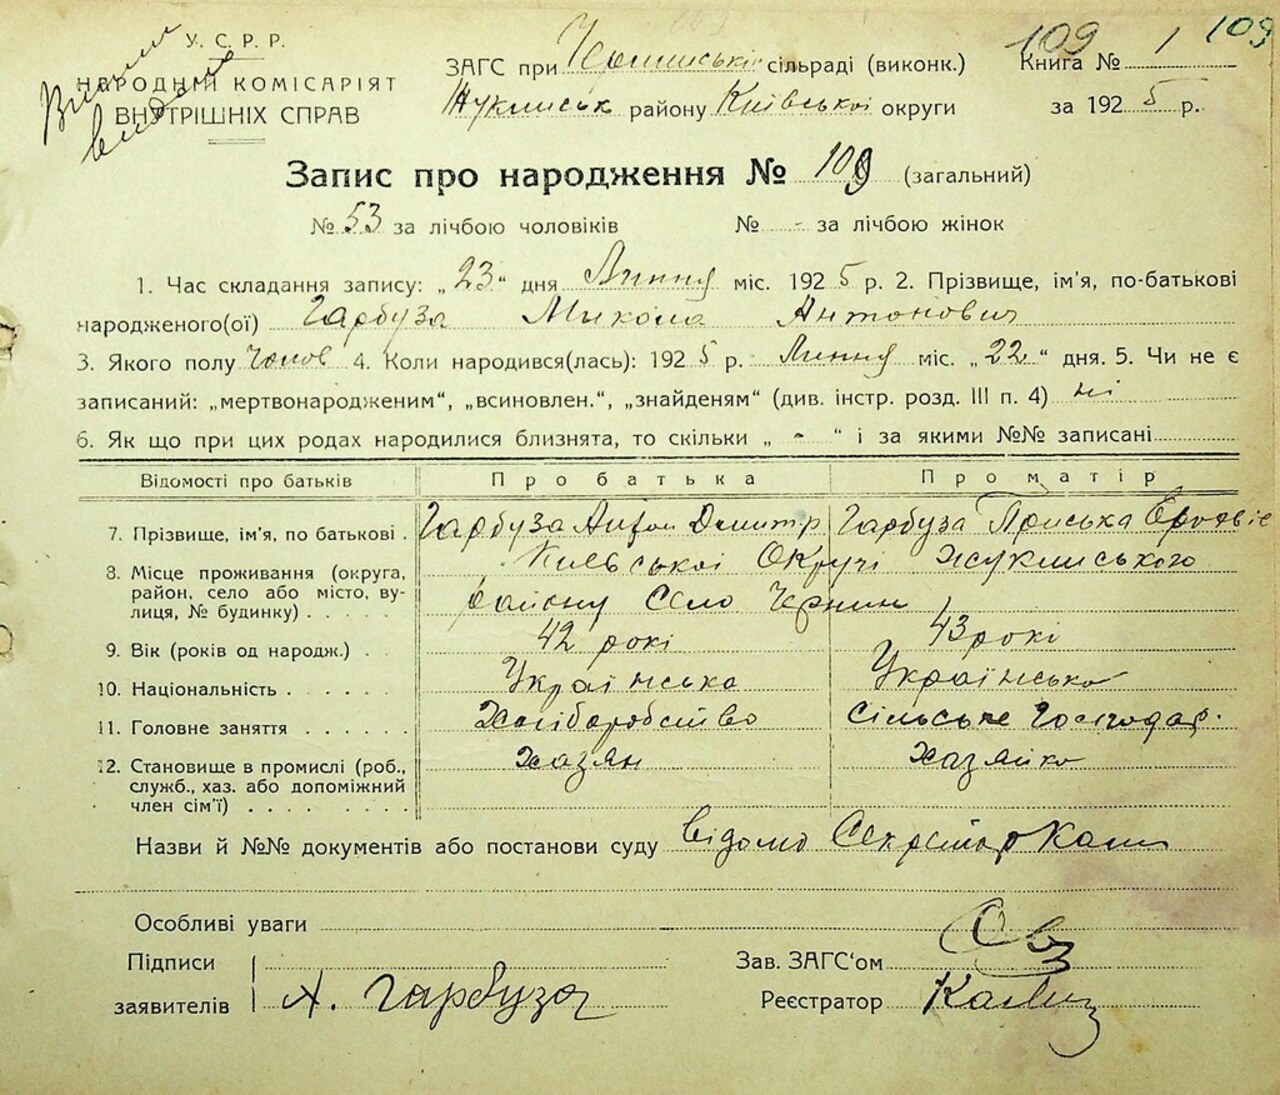 109 109
У. С. Р. Р.
НАРОДНИЙ КОМІСАРІЯТ
ВНУТРІШНІХ СПРАВ
ЗАГС при сільраді (виконк.) Книга № 1
району Київської округи за 1925 р.
Запис про народження № 109 (загальний)
№ 53 за лічбою чоловіків № - за лічбою жінок
1. Час складання запису: „23“ дня Липня міс. 1925 р. 2. Прізвище, ім'я, по-батькові
народженого(ої) Гарбуза Микола Антонович
3. Якого полу Чолов 4. Коли народився(лась): 1925 р. Липня міс. „22“ дня. 5. Чи не є
записаний: „мертвонародженим“, „всиновлен.“, „знайденям“ (див. інстр. розд. III п. 4) ні
6. Як що при цих родах народилися близнята, то скільки „ - “ і за якими №№ записані
Відомості про батьків Про батька Про матір
7. Прізвище, ім'я, по батькові . Гарбуза Антон Дмитр Гарбуза Приська
8. Місце проживання (округа, Київської Округі Жуклиського
район, село або місто, ву-
лиця, № будинку) . . . . . району Село Чернин
9. Вік (років од народж.) . 42 рокі 43 рокі
10. Національність . . . . . . Українська Українська
11. Головне заняття . . . . . . Хліборобство Сільське Господар.
12. Становище в промислі (роб., Хазян Хазяйка
служб., хаз. або допоміжний
член сім'ї) . . . . . . . .
Назви й №№ документів або постанови суду Відомо Секретар
Особливі уваги
Підписи Зав. ЗАГС'ом
заявителів А. Гарбуза Реєстратор